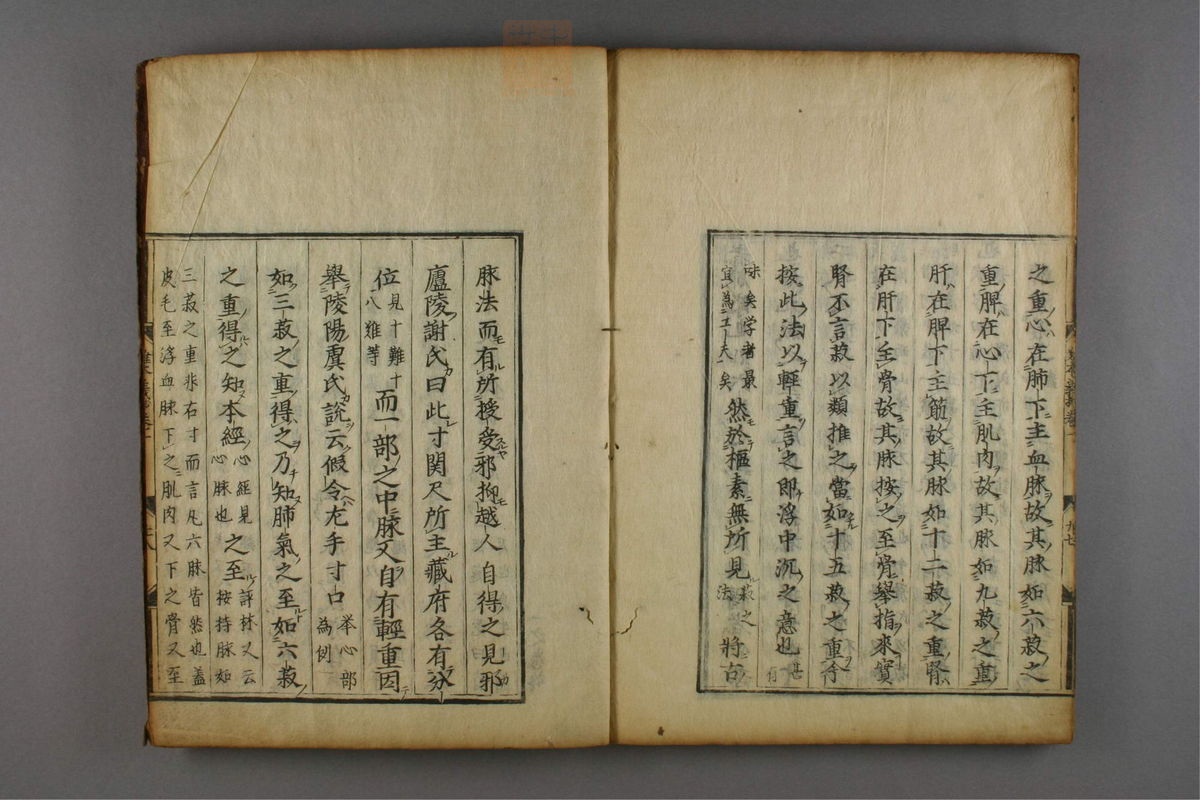 之重心在肺下主血脉故其脉如六菽之
重脾在心下主肌肉故其脉如九菽之重
肝在脾下主筋故其脉如十二菽之重腎
在肝下主骨故其脉按之至骨舉指來實
腎不言菽以類推之當如十五菽之重今
按此法以輕重言之即浮中沉之意也甚有
味矣学者最
宜為工夫矣
然於樞素無所見菽之
法
將古
脉法而有所授受邪抑越人自得之見邪
廬陵謝氏曰此寸関尺所主藏府各有分
位見十難十
八難等
而一部之中脉又自有輕重因
舉陵陽虞氏說云假令左手寸口举心部
為例
如三菽之重得之乃知肺氣之至如六菽
之重得之知本經心經見
心脉也
之至評林又云
按持脉如
三菽之重非右寸而言凡六脉皆然也蓋
皮毛至浮血脉下之肌肉又下之骨又至